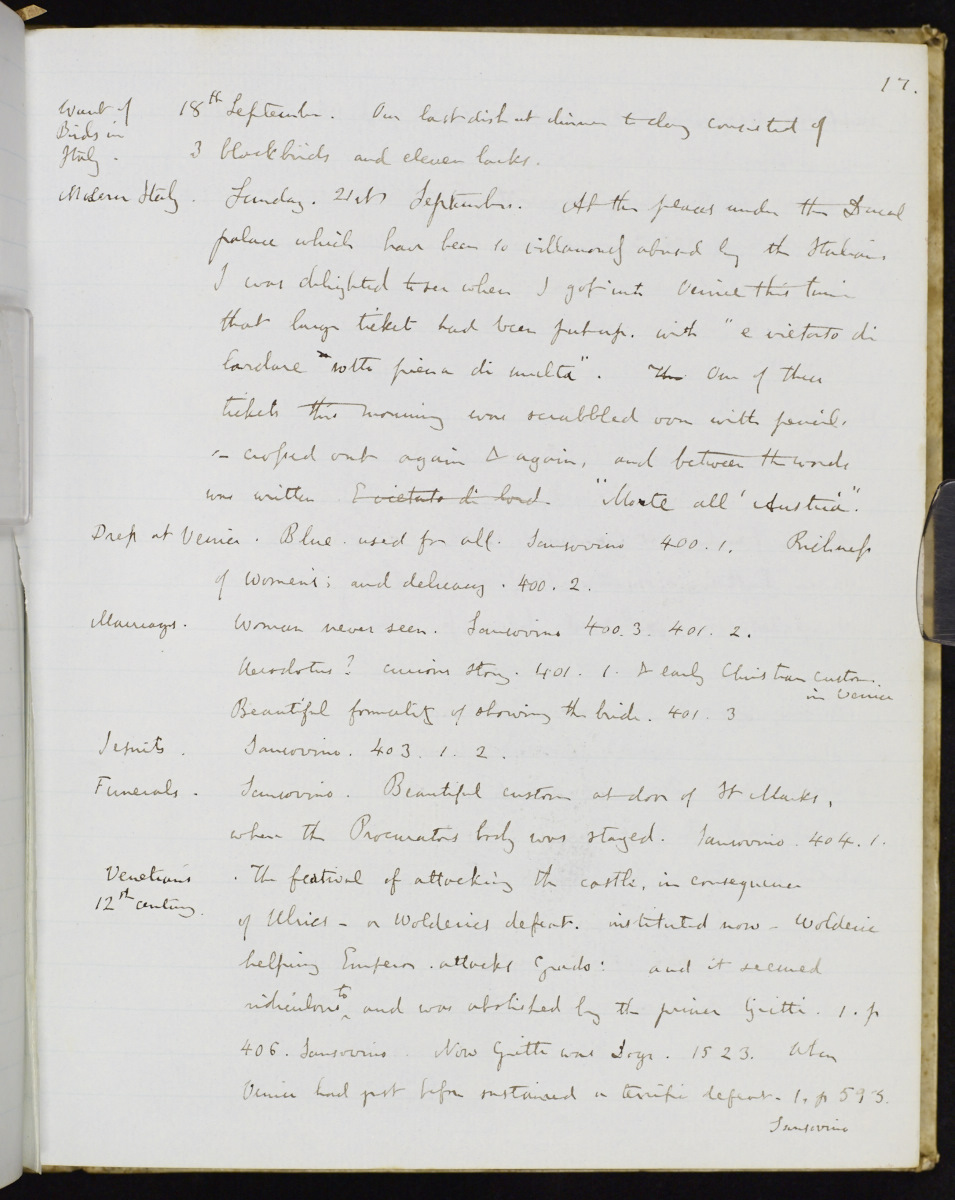 17.
Want of
Birds in
Italy.
18th September. Our last dish at dinner to day consisted of
3 blackbirds and eleven larks.
Modern Italy. Sunday. 21st September. At the places under the Ducal
palace which have been so villanously abused by the Italians
I was delighted to see when I got into Venice this time
that large ticket had been put up. with "e vietato di
lordare sotto piena di multa". The One of these
tickets this morning was scrabbled over with pencil.
– crossed out again & again, and between the words
was written E vietato di lord. "Morte all' Austria".
Dress at Venice. Blue. used for all. Sansovino 400.1. Richness
of Women's; and delicacy. 400.2.
Marriages. Woman never seen. Sansovino 400.3. 401.2.
Herodotus? curious story. 401.1. & early Christian custom
in Venice
Beautiful formality of showing the bride. 401.3
Jesuits. Sansovino. 403.1.2.
Funerals. Sansovino. Beautiful custom at door of St Marks,
when the Procurators body was stayed. Sansovino. 404.1.
Venetians
12th century.
. The festival of attacking the castle, in consequence
of Ulrics – or Wolderics defeat. instituted now – Wolderic
helping Emperor. attacks Grado: and it seemed
ridiculous to, and was abolished by the prince Gritti. 1. p
406. Sansovino. Now Gritti was Doge. 1523. When
Venice had just before sustained a terrific defeat. 1. p 593.
Sansovino